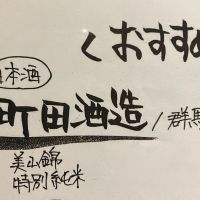 くおすすめ
日本酒
町田酒造/群馬
美山錦
特別純米